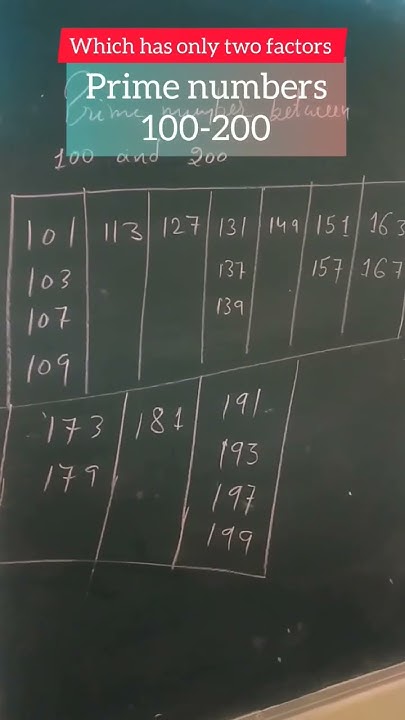 Which has only two factors
Prime numbers
100-200
Prime number between
100 and 200
101 113 127 131 149 151 163
103 137 157 167
107 139
109
173 181 191
179 193
197
199